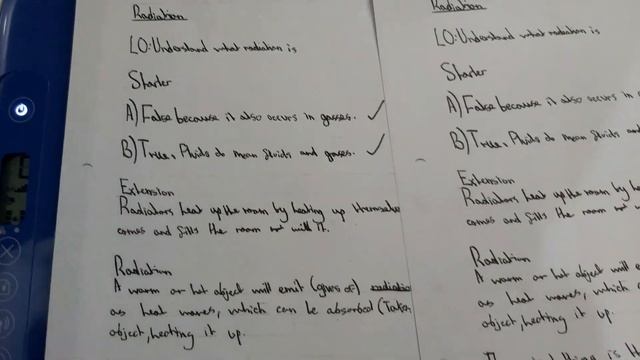 Radiation
LO: Understand what radiation is
Starter
A) False because it also occurs in gasses.
B) True, Fluids do mean fluids and gasses.
Extension
Radiators heat up the room by heating up themselves
comes and fills the room with it.
Radiation
A warm or hot object will emit (gives of)
as heat waves, which can be absorbed (Taken
object, heating it up.
Radiation
LO: Understand what radiation is
Starter
A) False because it also occurs in
B) True, Fluids do mean fluids and
Extension
Radiators heat up the room by
comes and fills the room
Radiation
A warm or hot object will
as heat waves, which
object, heating it up.